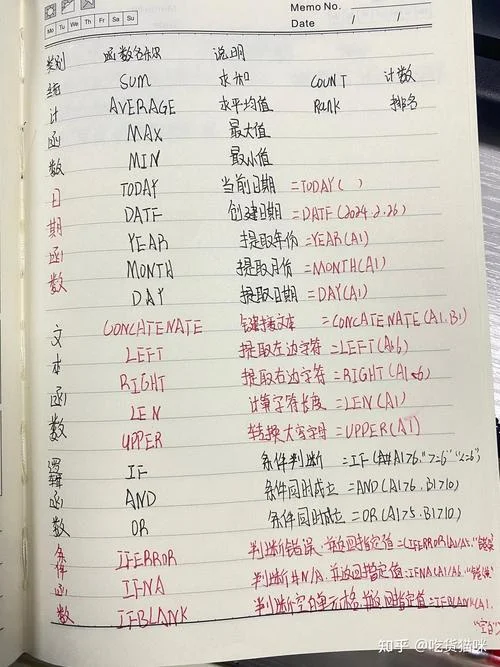 Memo No.
Mo Tu We Th Fr Sa Su
Date / /
类别 函数名称 说明
统 SUM 求和 COUNT 计数
计 AVERAGE 求平均值 Rank 排名
函 MAX 最大值
数 MIN 最小值
日 TODAY 当前日期 =TODAY( )
期 DATE 创建日期 =DATE(2024.2.26)
函 YEAR 提取年份 =YEAR(A1)
数 MONTH 提取月份 =MONTH(A1)
DAY 提取日期 =DAY(A1)
文 CONCATENATE 链接文本 =CONCATENATE(A1.B1)
本 LEFT 提取左边字符 =LEFT(A1.6)
函 RIGHT 提取右边字符 =RIGHT(A1.6)
LEN 计算字符长度 =LEN(A1)
数 UPPER 转换大写字母 =UPPER(A1)
逻辑 IF 条件判断 =IF(A1>6."7=6""2=6")
函 AND 条件同时成立 =AND(A1>6.B1>10)
数 OR 条件同时成立 =OR(A1>5.B1>10)
条 IFERROR 判断错误,并返回指定值=IFERROR(A1/A5."错误
件 IFNA 判断#N/A.并返回指定值=IFNA(A1/A6."错误
函
数 IFBLANK 判断空白单元格,并返回指定值=IFBLANK(A1.
"空白"
知乎 @吃货猫咪